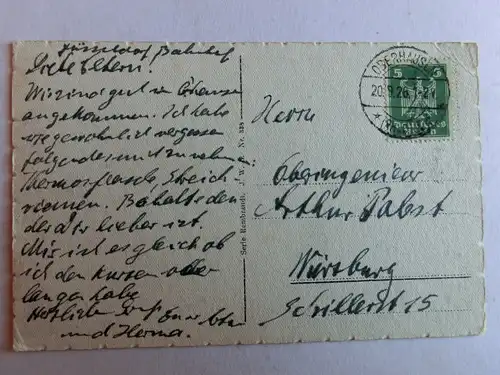 Düsseldorf Bahnhof
Liebe Eltern.
Wir sind gut in
angekommen. Ich habe
wie gewöhnlich vergessen
folgendes mitzunehmen:
Thermosflasche, Streich-
riemen. Behalts den
der dir lieber ist.
Mir ist es gleich ob
ich den kurzen oder
langen habe
Herzliche
und Herma.
Serie Rembrandt. J. W. B. Nr.
OBERHAUSEN
20.9.26. 1-2
5 5
Deutsches Reich
Herrn
Oberingenieur
Arthur Pabst
Würzburg
Schillerst 15